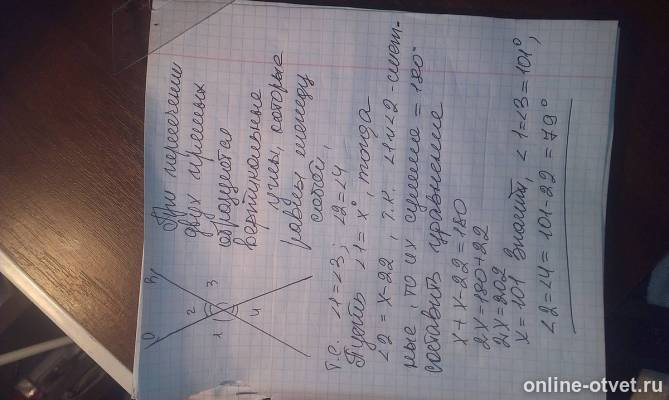 При пересечении
двух прямых
образуются
вертикальные
углы, которые
равны между
собой,
a
b
1
2
3
4
т.е. ∠1=∠3; ∠2=∠4
Пусть ∠1=x°, тогда
∠2=x-22, т.к. ∠1 и ∠2 - смеж-
ные, то их сумма = 180°
составить уравнение
x+x-22=180
2x=180+22
2x=202
x=101 значит, ∠1=∠3=101°,
∠2=∠4=101-22=79°
online-otvet.ru